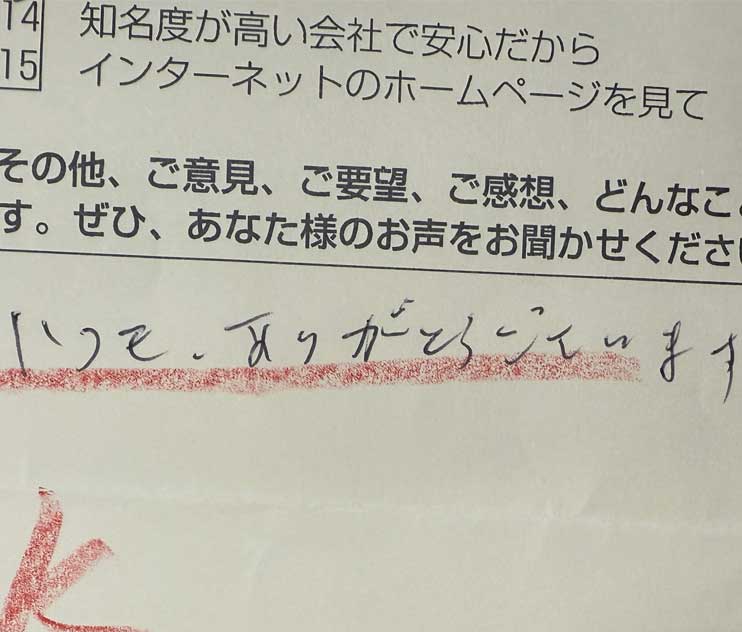 14 知名度が高い会社で安心だから
15 インターネットのホームページを見て
その他、ご意見、ご要望、ご感想、どんなこと
す。ぜひ、あなた様のお声をお聞かせくださ
いつも、ありがとうございます
K